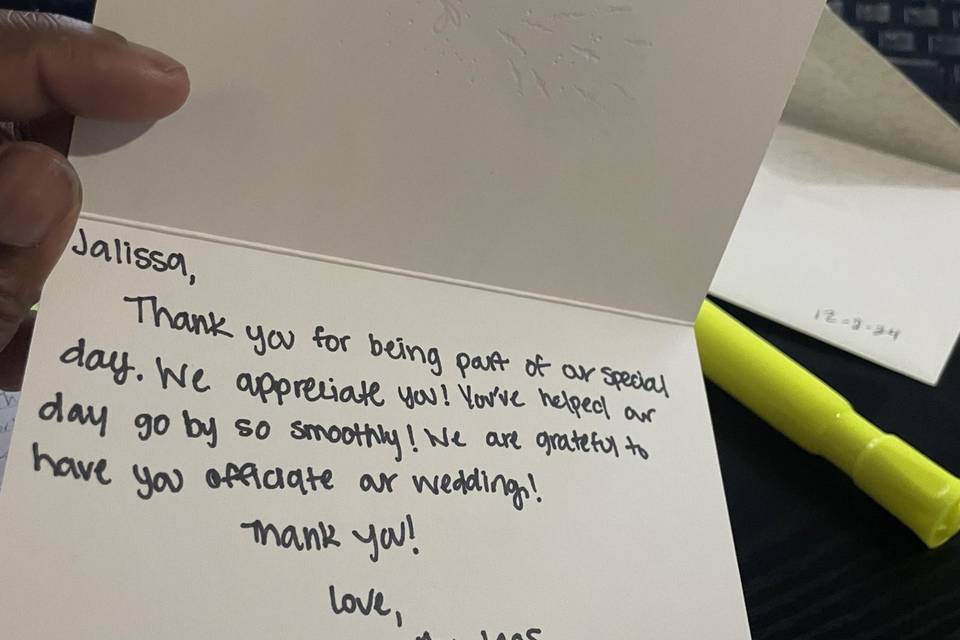 Jalissa,
Thank you for being part of our special
day. We appreciate you! You've helped our
day go by so smoothly! We are grateful to
have you officiate our wedding!
Thank you!
Love,
12-2-24